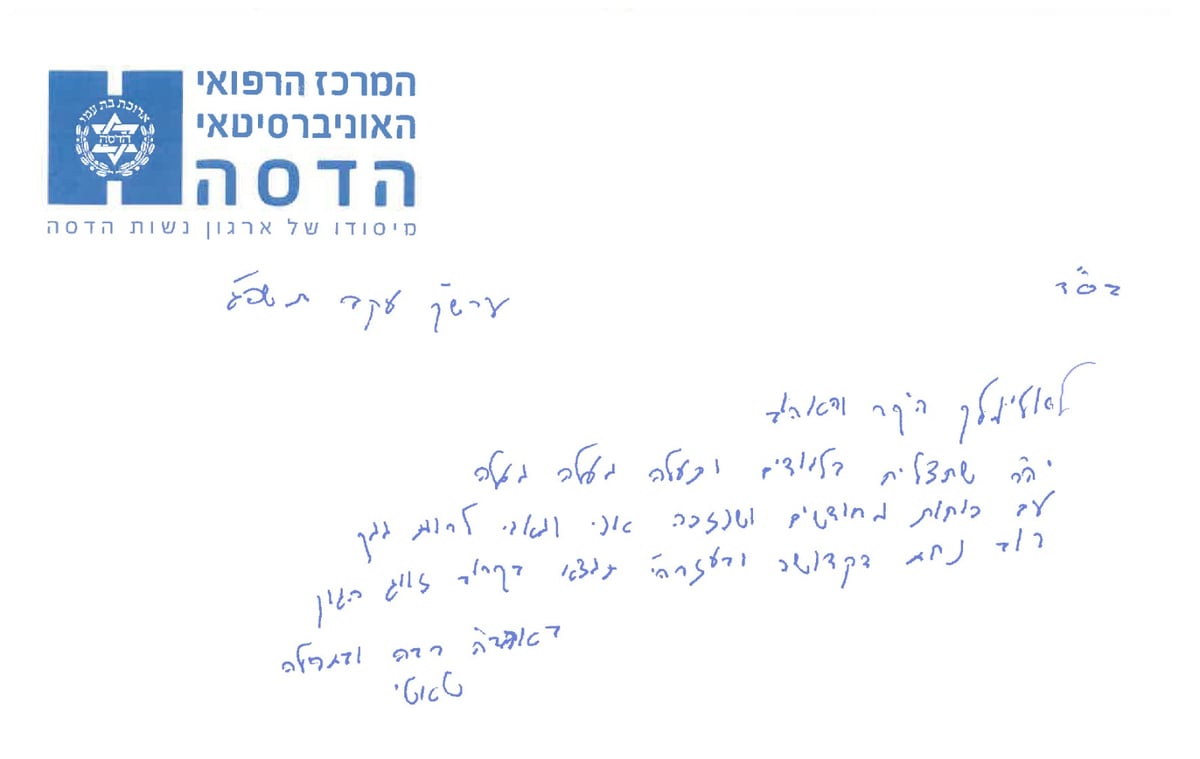 המרכז הרפואי
האוניברסיטאי
הדסה
ארוכת בת עמי
הדסה
מיסודו של ארגון נשות הדסה
בס"ד
ערש"ק עקב תשפ"ג
היקר והאהוב
יה"ר שתצליח בלימודים ותעלה מעלה מעלה
עם כוחות מחודשים ושנזכה אני ומאמי לרוות ממך
רוב נחת דקדושה ובעזרה"י תמצא בקרוב זיווג הגון
באהבה רבה ובתפילה
טאטי